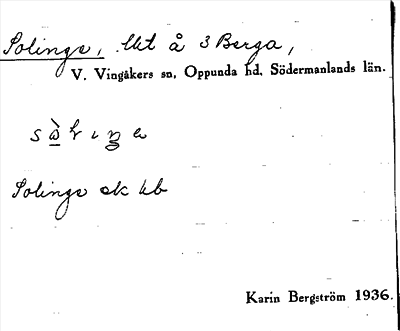 Solinge, Utt å 3 Berga,
V. Vingåkers sn, Oppunda hd, Södermanlands län.
Solinge ek kb
Karin Bergström 1936.